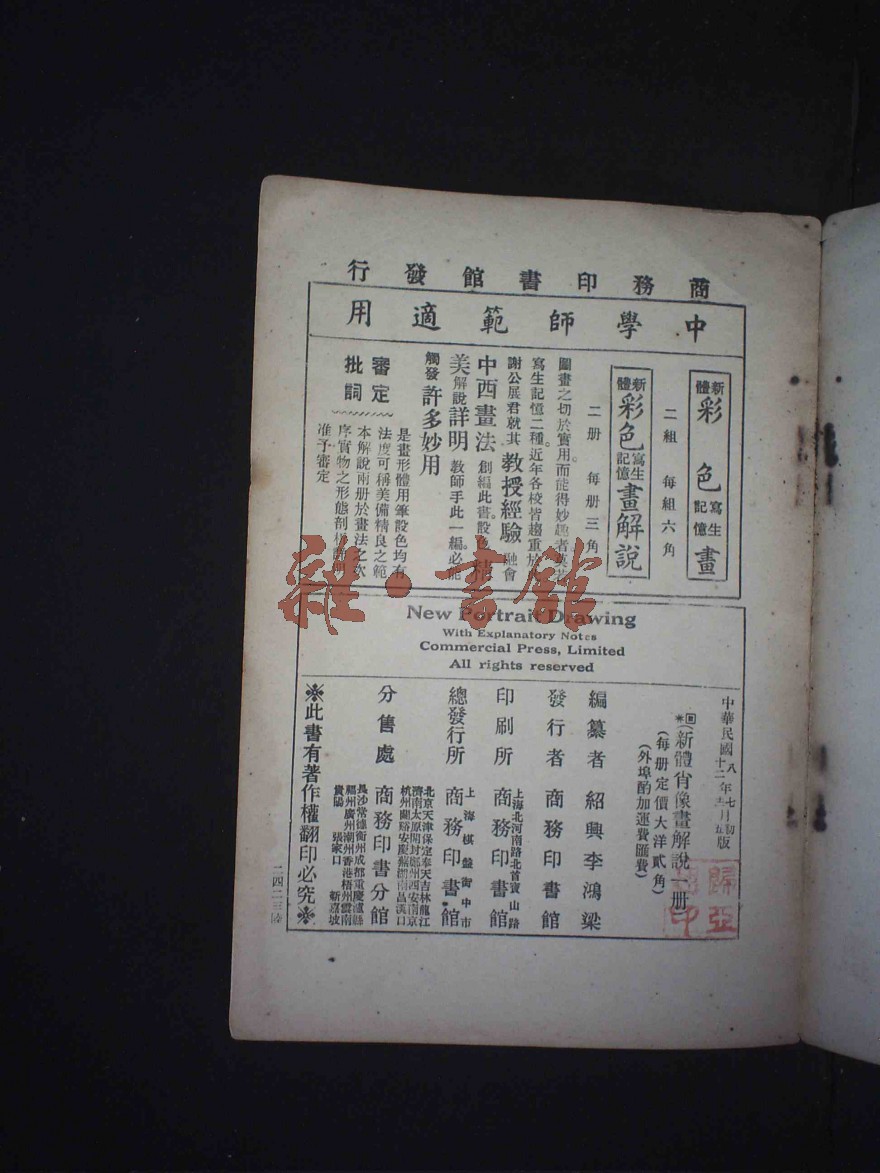 商務印書館發行
中學師範適用
新體彩色寫生記憶畫
二組 每組六角
新體彩色寫生記憶畫解說
二冊 每冊三角
圖畫之切於實用。而能得妙趣者莫
寫生記憶二種。近年各校皆趨重於
謝公展君就其教授經驗融會
中西畫法創編此書。設色精
美解說詳明教師手此一編。必能
觸發許多妙用
審定批詞
是畫形體用筆設色均有
法度可稱美備精良之範
本解說兩冊於畫法之次
序實物之形態剖析詳明
准予審定
New Portrait Drawing
With Explanatory Notes
Commercial Press, Limited
All rights reserved
中華民國八年七月初版
十二年 月五版
(新體肖像畫解說一冊)
(每冊定價大洋貳角)
(外埠酌加運費匯費)
編纂者 紹興李鴻梁
發行者 商務印書館
印刷所 上海北河南路北首寶山路 商務印書館
總發行所 上海棋盤街中市 商務印書館
分售處 商務印書分館
北京天津保定奉天吉林龍江
濟南太原開封鄭州西安南京
杭州蘭谿安慶蕪湖南昌漢口
長沙常德衡州成都重慶瀘縣
福州廣州潮州香港梧州雲南
貴陽 張家口 新嘉坡
※此書有著作權翻印必究※
二四二三陸
雜·書館